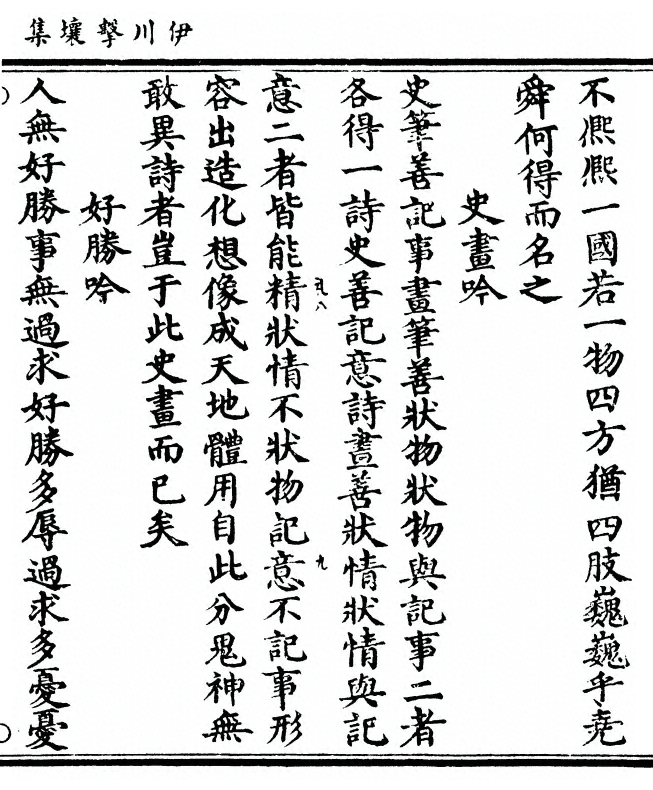 伊川擊壤集
不熈熈一國若一物四方猶四肢巍巍乎堯
舜何得而名之
史畫吟
史筆善記事畫筆善狀物狀物與記事二者
各得一詩史善記意詩畫善狀情狀情與記
意二者皆能精狀情不狀物記意不記事形
容出造化想像成天地體用自此分鬼神無
敢異詩者豈于此史畫而已矣
好勝吟
人無好勝事無過求好勝多辱過求多憂憂